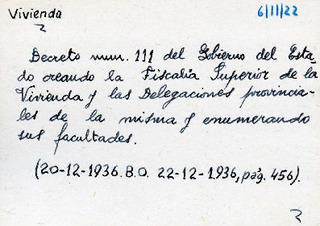 Vivienda
6/11/22
2
Decreto num. 111 del Gobierno del Esta-
do creando la Fiscalía Superior de la
Vivienda y las Delegaciones provincia-
les de la misma y enumerando
sus facultades.
(20-12-1936. B.O. 22-12-1936, pág. 456).
2